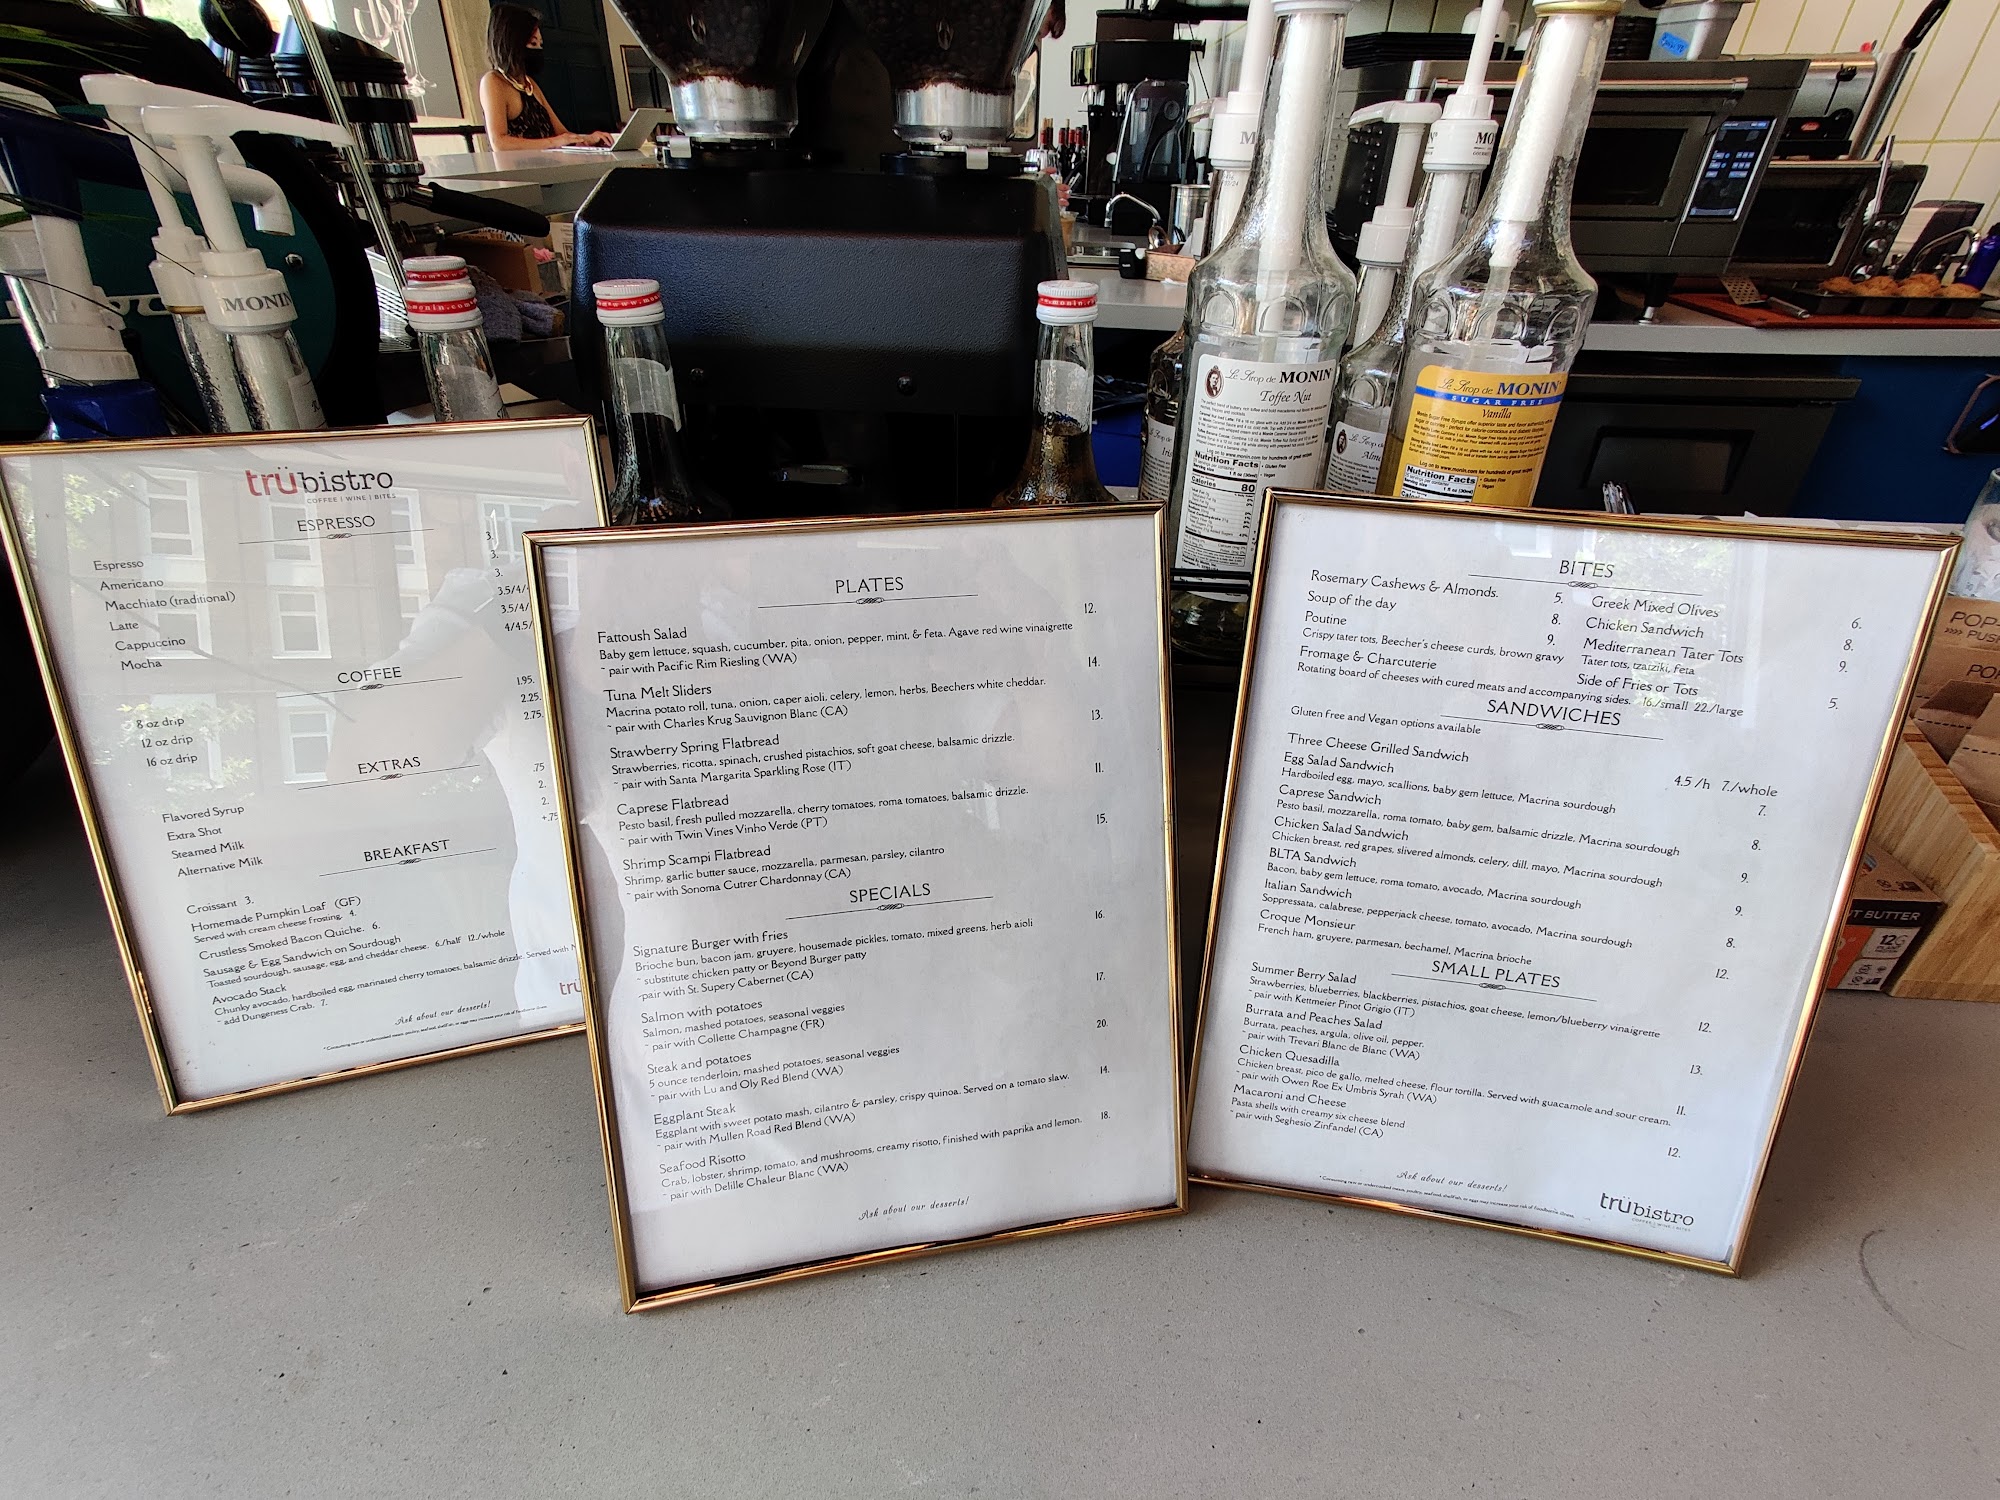 MONIN
Le Sirop de MONIN
Toffee Nut
Nutrition Facts
Calories 80
Le Sirop de MONIN
SUGAR FREE
Vanilla
Nutrition Facts
POP-
PUS
UT BUTTER
12G
trübistro
COFFEE | WINE | BITES
ESPRESSO
Espresso 3.
Americano 3.
Macchiato (traditional) 3.
Latte 3.5/4/
Cappuccino 3.5/4/
Mocha 4/4.5/
COFFEE
8 oz drip 1.95
12 oz drip 2.25.
16 oz drip 2.75.
EXTRAS
Flavored Syrup .75
Extra Shot 2.
Steamed Milk 2.
Alternative Milk +.75
BREAKFAST
Croissant 3.
Homemade Pumpkin Loaf (GF)
Served with cream cheese frosting. 4.
Crustless Smoked Bacon Quiche. 6.
Sausage & Egg Sandwich on Sourdough
Toasted sourdough, sausage, egg, and cheddar cheese. 6./half 12./whole
Avocado Stack
Chunky avocado, hardboiled egg, marinated cherry tomatoes, balsamic drizzle. Served with
~ add Dungeness Crab. 7.
Ask about our desserts!
trü
PLATES
Fattoush Salad 12.
Baby gem lettuce, squash, cucumber, pita, onion, pepper, mint, & feta. Agave red wine vinaigrette
~ pair with Pacific Rim Riesling (WA)
Tuna Melt Sliders 14.
Macrina potato roll, tuna, onion, caper aioli, celery, lemon, herbs, Beechers white cheddar.
~ pair with Charles Krug Sauvignon Blanc (CA)
Strawberry Spring Flatbread 13.
Strawberries, ricotta, spinach, crushed pistachios, soft goat cheese, balsamic drizzle.
~ pair with Santa Margarita Sparkling Rose (IT)
Caprese Flatbread 11.
Pesto basil, fresh pulled mozzarella, cherry tomatoes, roma tomatoes, balsamic drizzle.
~ pair with Twin Vines Vinho Verde (PT)
Shrimp Scampi Flatbread 15.
Shrimp, garlic butter sauce, mozzarella, parmesan, parsley, cilantro
~ pair with Sonoma Cutrer Chardonnay (CA)
SPECIALS
Signature Burger with fries 16.
Brioche bun, bacon jam, gruyere, housemade pickles, tomato, mixed greens, herb aioli
~ substitute chicken patty or Beyond Burger patty
~pair with St. Supery Cabernet (CA)
Salmon with potatoes 17.
Salmon, mashed potatoes, seasonal veggies
~ pair with Collette Champagne (FR)
Steak and potatoes 20.
5 ounce tenderloin, mashed potatoes, seasonal veggies
~ pair with Lu and Oly Red Blend (WA)
Eggplant Steak 14.
Eggplant with sweet potato mash, cilantro & parsley, crispy quinoa. Served on a tomato slaw.
~ pair with Mullen Road Red Blend (WA)
Seafood Risotto 18.
Crab, lobster, shrimp, tomato, and mushrooms, creamy risotto, finished with paprika and lemon.
~ pair with Delille Chaleur Blanc (WA)
Ask about our desserts!
BITES
Rosemary Cashews & Almonds. 5.
Soup of the day 8.
Poutine 9.
Crispy tater tots, Beecher's cheese curds, brown gravy
Fromage & Charcuterie
Rotating board of cheeses with cured meats and accompanying sides. 16./small 22./large
Greek Mixed Olives 6.
Chicken Sandwich 8.
Mediterranean Tater Tots 9.
Tater tots, tzatziki, feta
Side of Fries or Tots 5.
SANDWICHES
Gluten free and Vegan options available
Three Cheese Grilled Sandwich 4.5 /h 7./whole
Egg Salad Sandwich 7.
Hardboiled egg, mayo, scallions, baby gem lettuce, Macrina sourdough
Caprese Sandwich 8.
Pesto basil, mozzarella, roma tomato, baby gem, balsamic drizzle, Macrina sourdough
Chicken Salad Sandwich 9.
Chicken breast, red grapes, slivered almonds, celery, dill, mayo, Macrina sourdough
BLTA Sandwich 9.
Bacon, baby gem lettuce, roma tomato, avocado, Macrina sourdough
Italian Sandwich 8.
Soppressata, calabrese, pepperjack cheese, tomato, avocado, Macrina sourdough
Croque Monsieur 12.
French ham, gruyere, parmesan, bechamel, Macrina brioche
SMALL PLATES
Summer Berry Salad 12.
Strawberries, blueberries, blackberries, pistachios, goat cheese, lemon/blueberry vinaigrette
~ pair with Kettmeier Pinot Grigio (IT)
Burrata and Peaches Salad 13.
Burrata, peaches, argula, olive oil, pepper.
~ pair with Trevari Blanc de Blanc (WA)
Chicken Quesadilla 11.
Chicken breast, pico de gallo, melted cheese, flour tortilla. Served with guacamole and sour cream.
~ pair with Owen Roe Ex Umbris Syrah (WA)
Macaroni and Cheese 12.
Pasta shells with creamy six cheese blend
~ pair with Seghesio Zinfandel (CA)
Ask about our desserts!
trübistro
COFFEE | WINE | BITES